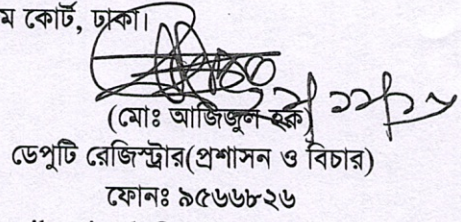 ম কোর্ট, ঢাকা।
(মোঃ আজিজুল হক)
ডেপুটি রেজিস্ট্রার(প্রশাসন ও বিচার)
ফোনঃ ৯৫৬৬৮২৬